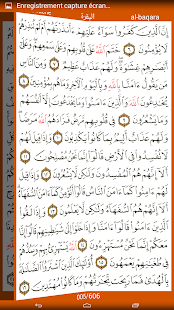 Enregistrement capture écran...
البقرة al-baqara
إِنَّ الَّذِينَ كَفَرُوا سَوَاءٌ عَلَيْهِمْ ءَأَنذَرْتَهُمْ أَمْ لَمْ تُنذِرْهُمْ
لَا يُؤْمِنُونَ ٦ خَتَمَ اللَّهُ عَلَىٰ قُلُوبِهِمْ وَعَلَىٰ سَمْعِهِمْ وَعَلَىٰ
أَبْصَٰرِهِمْ غِشَٰوَةٌ وَلَهُمْ عَذَابٌ عَظِيمٌ ٧ وَمِنَ النَّاسِ
مَن يَقُولُ ءَامَنَّا بِاللَّهِ وَبِالْيَوْمِ الْءَاخِرِ وَمَا هُم بِمُؤْمِنِينَ ٨
يُخَٰدِعُونَ اللَّهَ وَالَّذِينَ ءَامَنُوا وَمَا يَخْدَعُونَ إِلَّا أَنفُسَهُمْ وَمَا
يَشْعُرُونَ ٩ فِي قُلُوبِهِم مَّرَضٌ فَزَادَهُمُ اللَّهُ مَرَضًا وَلَهُمْ
عَذَابٌ أَلِيمٌ بِمَا كَانُوا يَكْذِبُونَ ١٠ وَإِذَا قِيلَ لَهُمْ لَا
تُفْسِدُوا فِي الْأَرْضِ قَالُوا إِنَّمَا نَحْنُ مُصْلِحُونَ ١١
أَلَا إِنَّهُمْ هُمُ الْمُفْسِدُونَ وَلَٰكِن لَّا يَشْعُرُونَ ١٢ وَإِذَا قِيلَ
لَهُمْ ءَامِنُوا كَمَا ءَامَنَ النَّاسُ قَالُوا أَنُؤْمِنُ كَمَا ءَامَنَ السُّفَهَاءُ
أَلَا إِنَّهُمْ هُمُ السُّفَهَاءُ وَلَٰكِن لَّا يَعْلَمُونَ ١٣ وَإِذَا لَقُوا
الَّذِينَ ءَامَنُوا قَالُوا ءَامَنَّا وَإِذَا خَلَوْا إِلَىٰ شَيَٰطِينِهِمْ قَالُوا إِنَّا
مَعَكُمْ إِنَّمَا نَحْنُ مُسْتَهْزِءُونَ ١٤ اللَّهُ يَسْتَهْزِئُ بِهِمْ وَيَمُدُّهُمْ
فِي طُغْيَٰنِهِمْ يَعْمَهُونَ ١٥ أُولَٰئِكَ الَّذِينَ اشْتَرَوُا الضَّلَٰلَةَ
بِالْهُدَىٰ فَمَا رَبِحَت تِّجَٰرَتُهُمْ وَمَا كَانُوا مُهْتَدِينَ ١٦